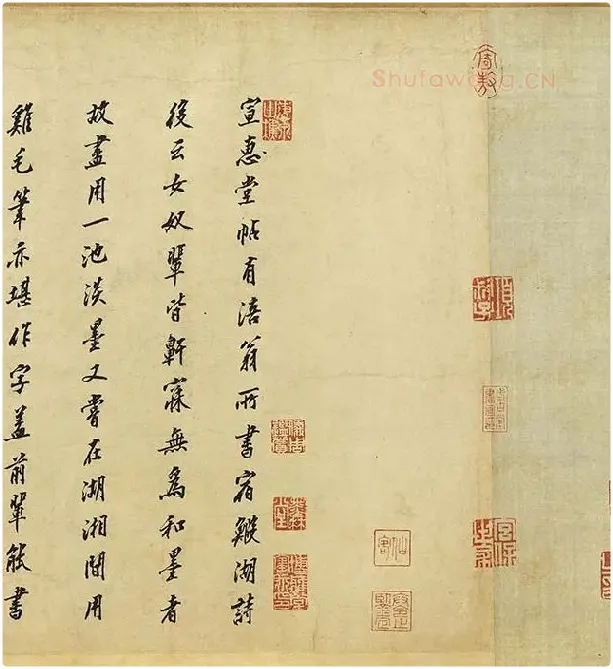 Shufawang.CN
宣惠堂帖有涪翁所書宿鰕湖詩
後云女奴輩皆鼾寐無爲和墨者
故盡用一池淡墨又嘗在湖湘間用
雞毛筆亦堪作字蓋前輩能書